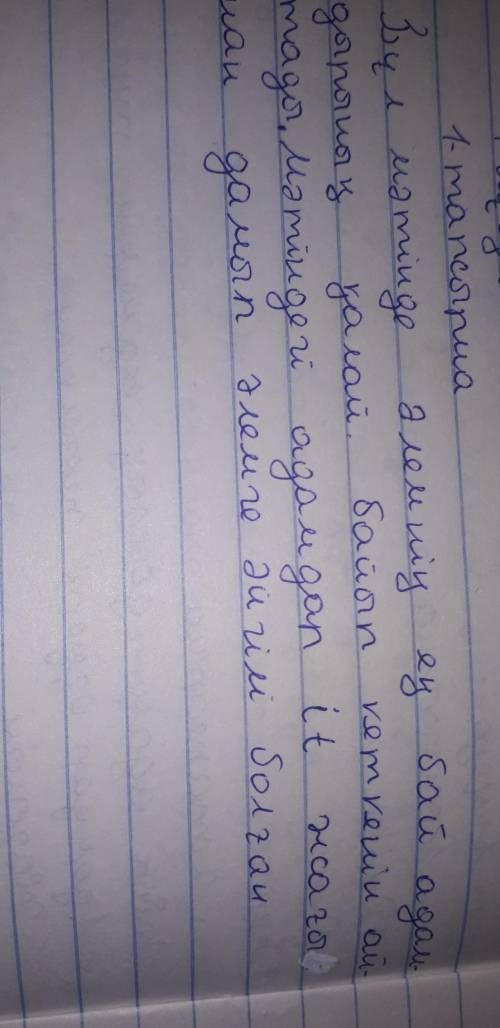 1-тапсырма
Бұл мәтінде әлемнің ең бай адам-
дарының қалай байып кеткенін ай-
тады, мәтіндегі адамдар it жағы
нан дамып әлемге әйгілі болған